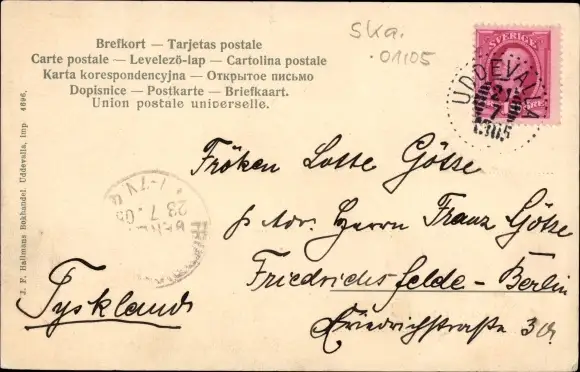 Ska.
01105
SVERIGE
UDDEVALLA
21
7
1905
Brefkort — Tarjetas postale
Carte postale — Levelezö-lap — Cartolina postale
Karta korespondencyjna — Открытое письмо
Dopisnice — Postkarte — Briefkaart.
Union postale universelle.
J. F. Hallmans Bokhandel, Uddevalla, imp. 4696.
Fröken Lotte Götze
p. Adr. Herrn Franz Götze
Friedrichsfelde-Berlin
Friedrichstraße
Tyskland
23.7.05